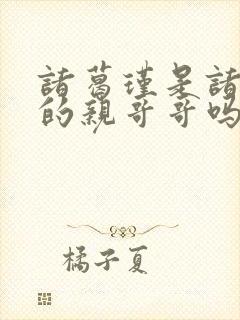 諸葛瑾是諸
的親哥哥嗎
橘子夏